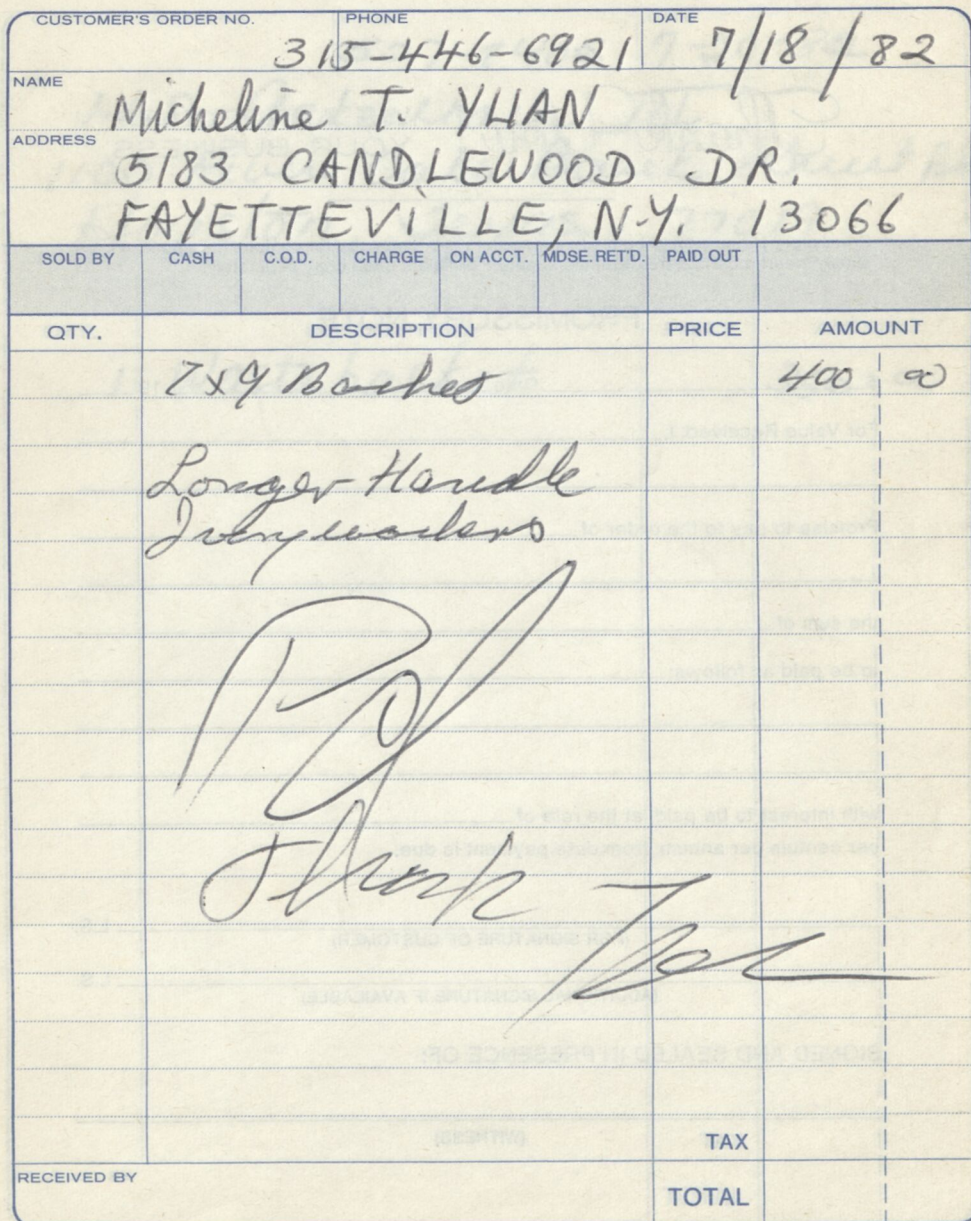 CUSTOMER'S ORDER NO. PHONE DATE
315-446-6921 7/18/82
NAME
Micheline T. YUAN
ADDRESS
5183 CANDLEWOOD DR.
FAYETTEVILLE, N.Y. 13066
SOLD BY CASH C.O.D. CHARGE ON ACCT. MDSE. RET'D. PAID OUT
QTY. DESCRIPTION PRICE AMOUNT
7x9 Basket 400 00
Longer Handle
Pd
Thank
TAX
RECEIVED BY
TOTAL